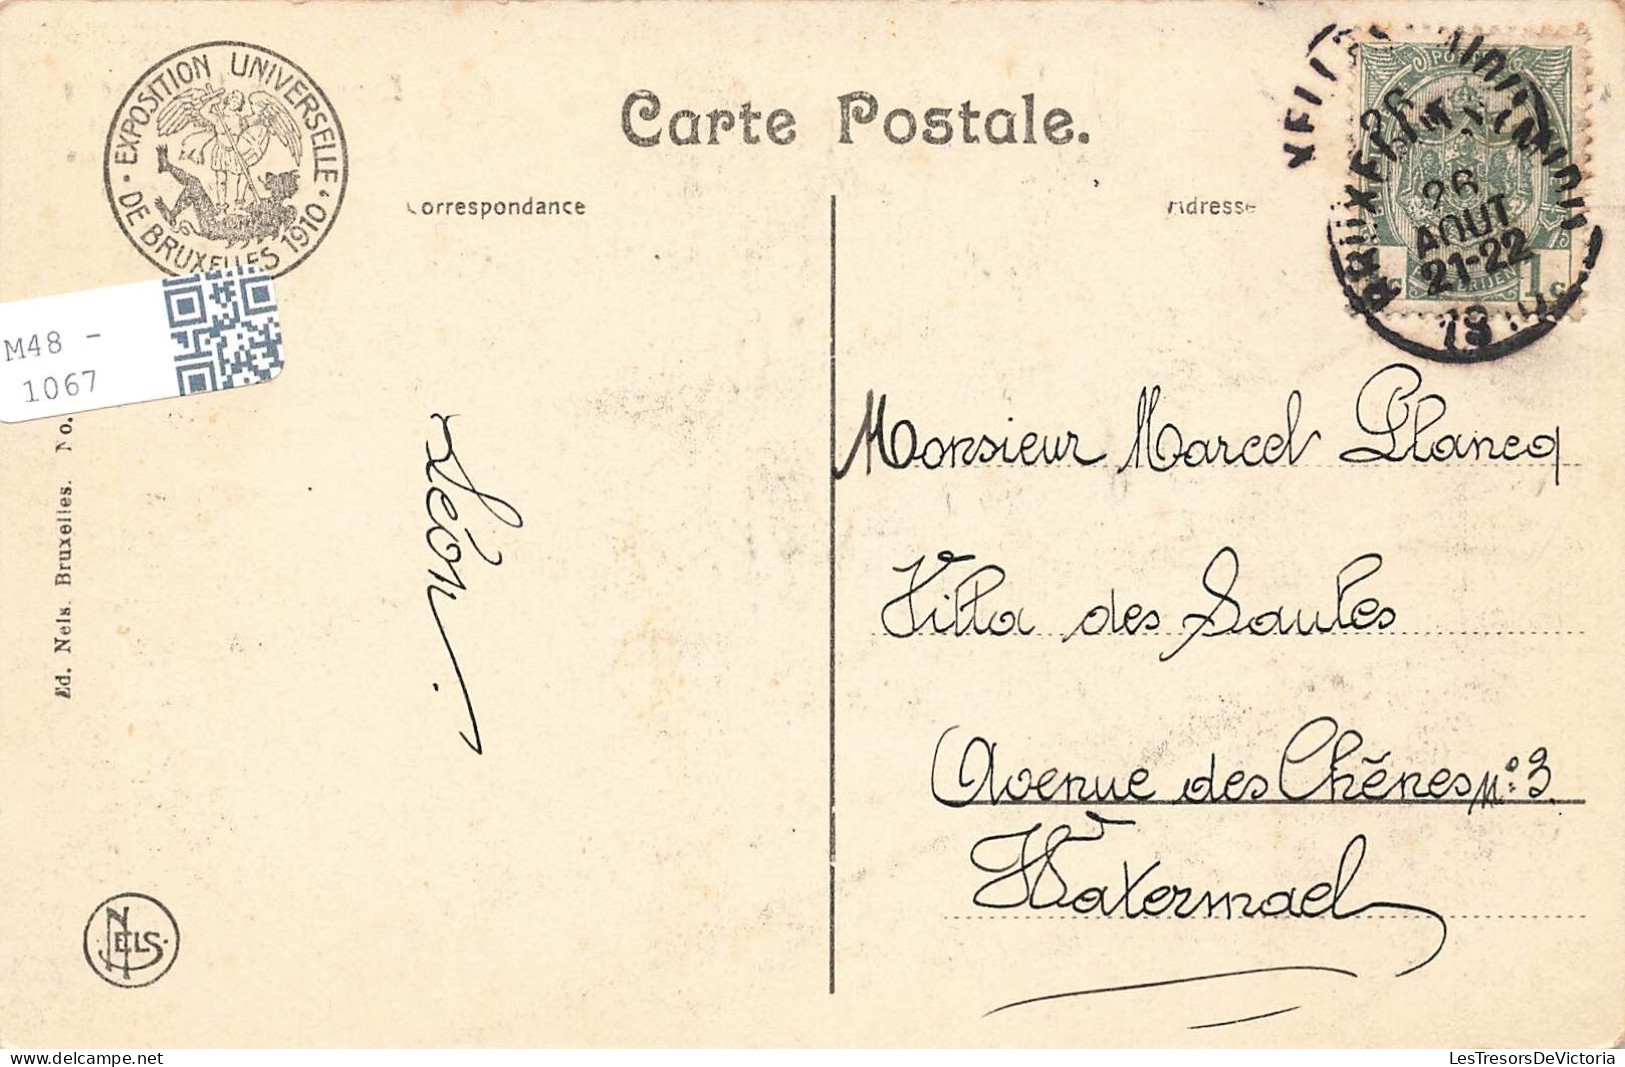 EXPOSITION UNIVERSELLE
DE BRUXELLES 1910
Carte Postale.
Correspondance
Adresse
26
BRUXELLES
26
AOUT
21-22
19
1c
M48 -
1067
Ed. Nels. Bruxelles. No.
Léon.
Monsieur Marcel Plancq
Villa des Saules
Avenue des Chênes n°: 3.
Watermael
NELS.
M48-1067
LesTresorsDeVictoria